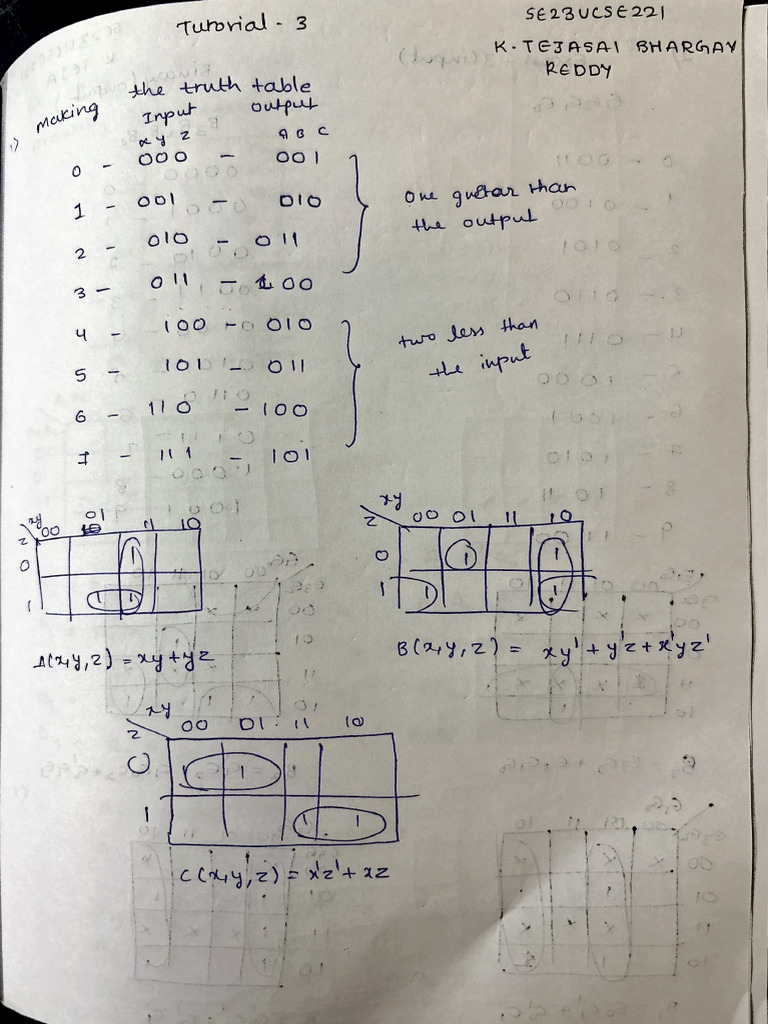 Tutorial - 3
SE23UCSE221
K. TEJASAI BHARGAV
REDDY
Making the truth table
1) Input output
x y z A B C
0 - 000 - 001
1 - 001 - 010
2 - 010 - 011
3 - 011 - 100
one greatar than
the output
4 - 100 - 010
5 - 101 - 011
6 - 110 - 100
7 - 111 - 101
two less than
the input
xy
z 00 01 11 10
0 1
1 1 1
A(x,y,z) = xy + yz
xy
z 00 01 11 10
0 1 1
1 1 1
B(x,y,z) = xy' + y'z + x'yz'
xy
z 00 01 11 10
0 1 1
1 1 1
C(x,y,z) = x'z' + xz